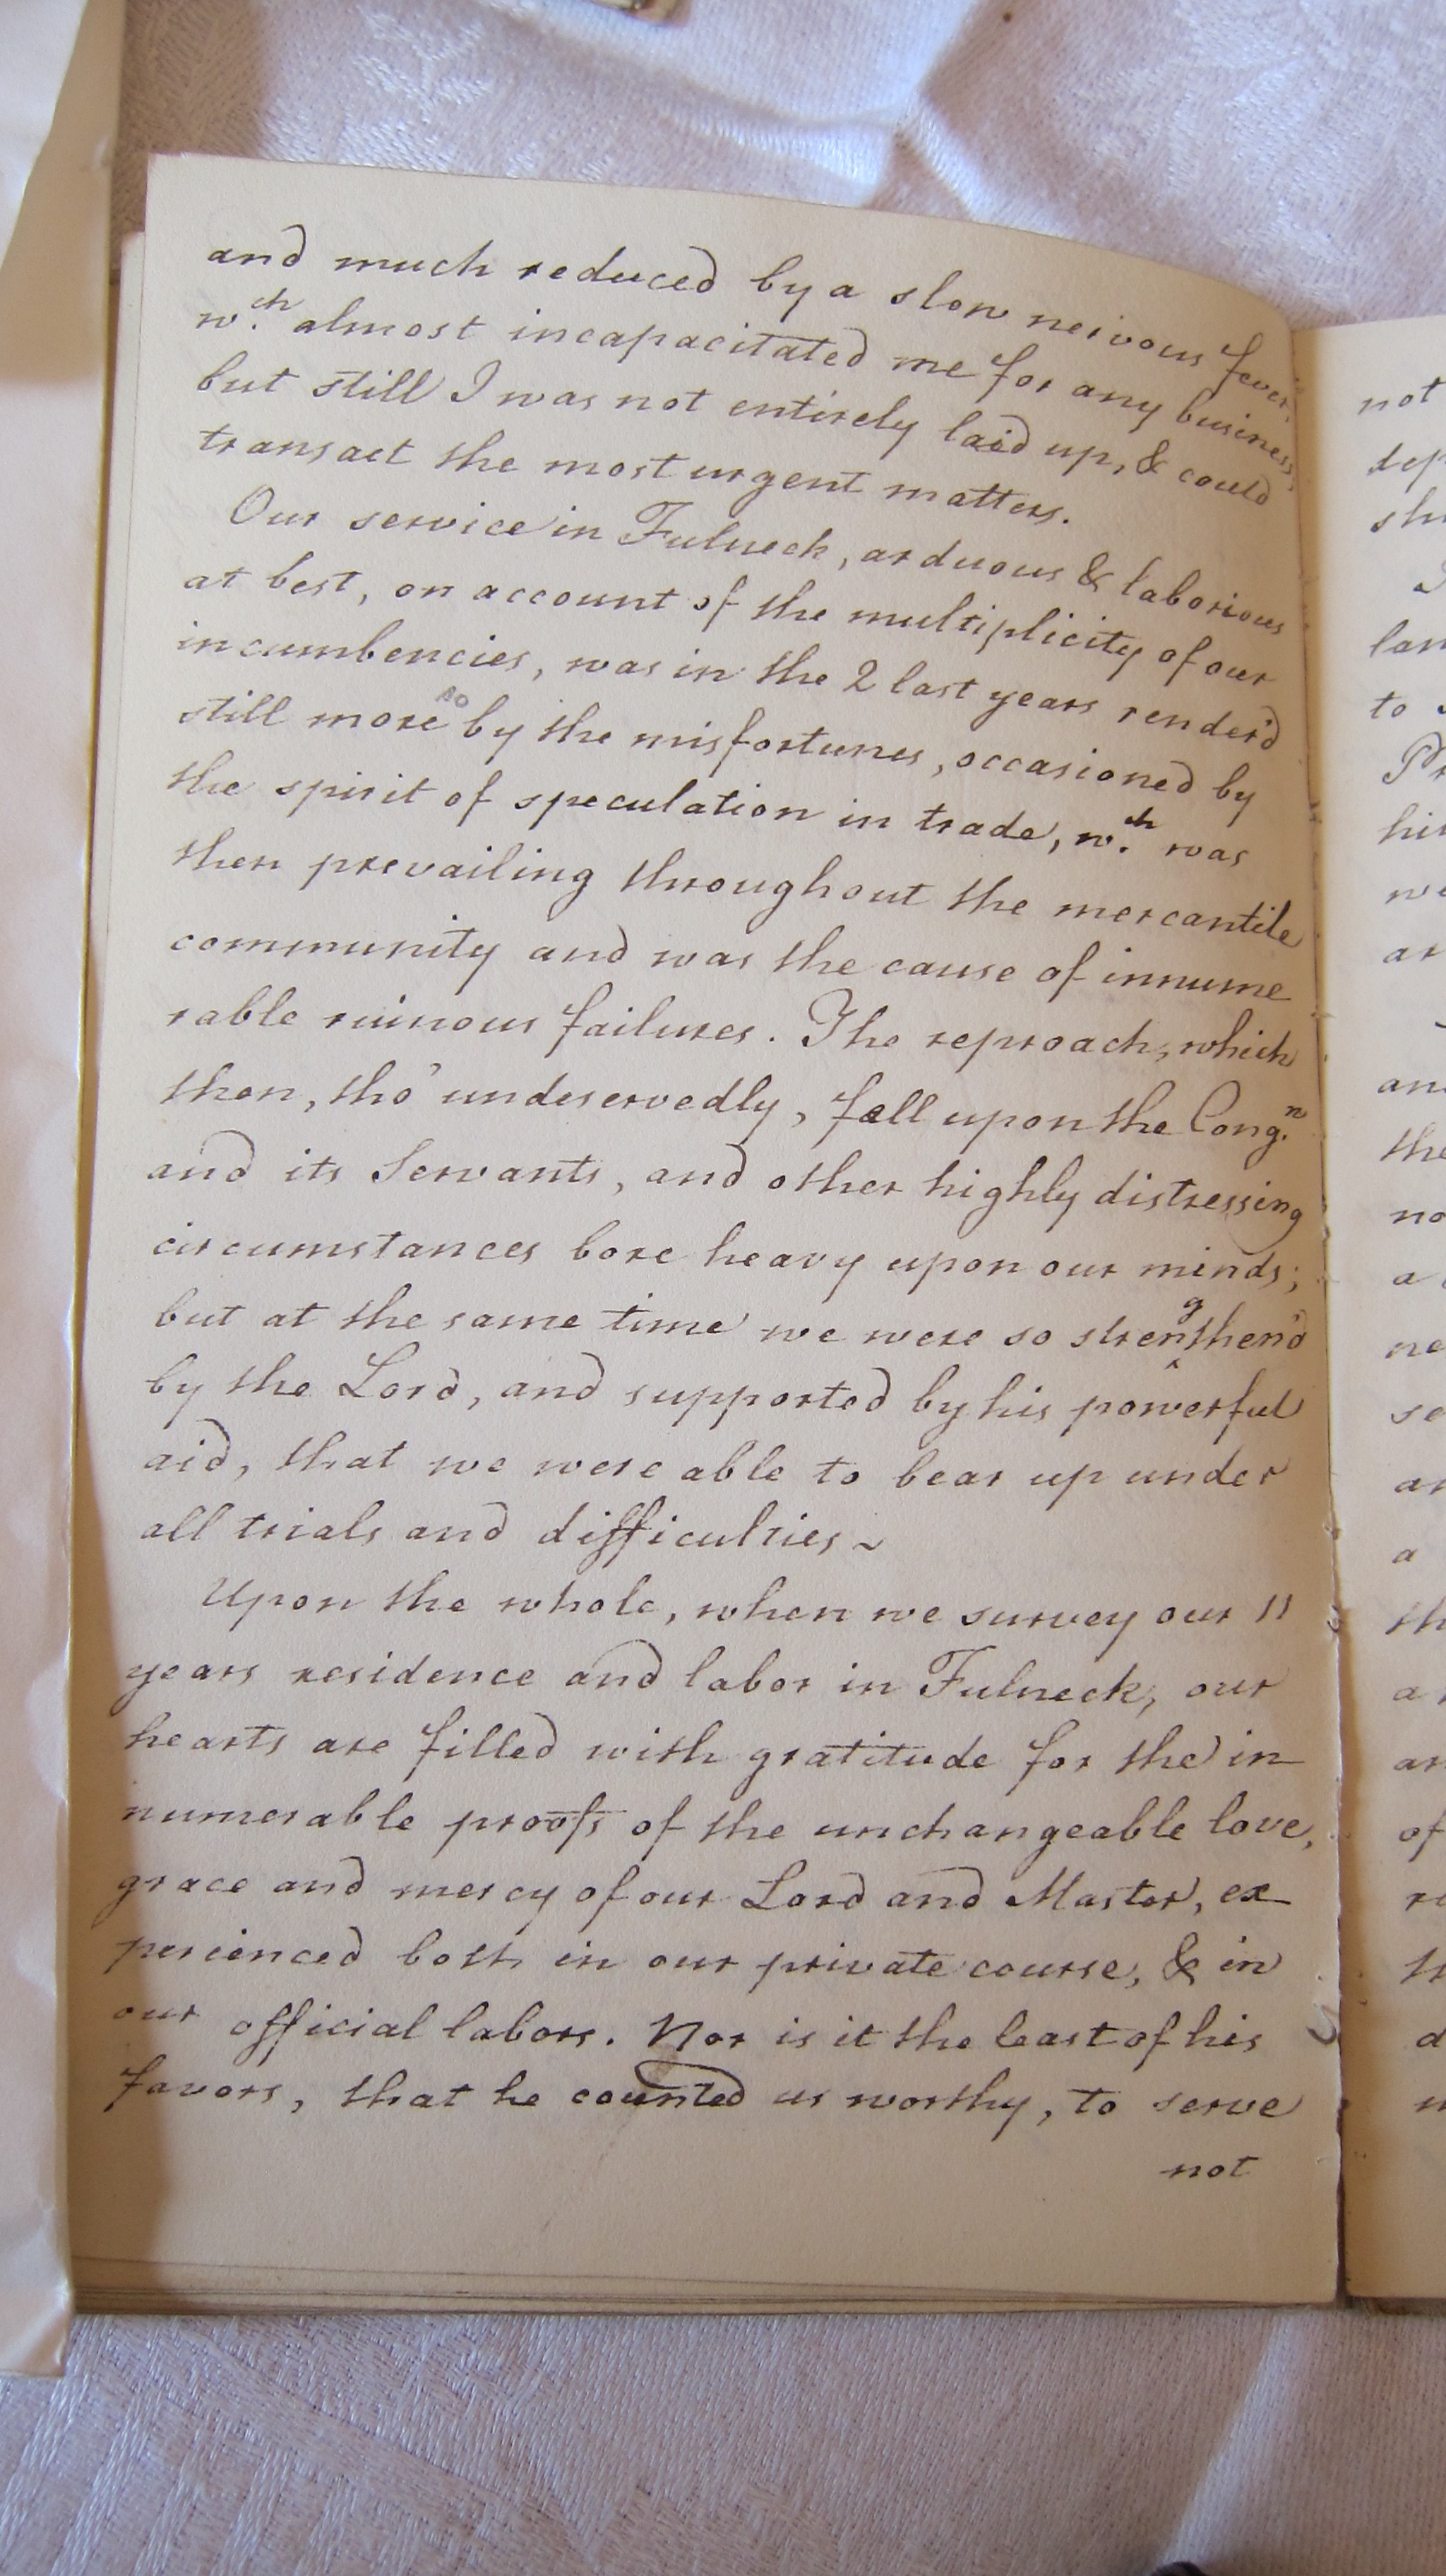 and much reduced by a slow nervous fever,
wch almost incapacitated me for any business,
but still I was not entirely laid up, & could
transact the most urgent matters.
Our service in Fulneck, arduous & laborious
at best, on account of the multiplicity of our
incumbencies, was in the 2 last years render'd
still more so by the misfortunes, occasioned by
the spirit of speculation in trade, wch was
then prevailing throughout the mercantile
community and was the cause of innume
rable ruinous failures. The reproach, which
then, tho' undeservedly, fell upon the Congn
and its Servants, and other highly distressing
circumstances bore heavy upon our minds;
but at the same time we were so strengthen'd
by the Lord, and supported by his powerful
aid, that we were able to bear up under
all trials and difficulties ~
Upon the whole, when we survey our 11
years residence and labor in Fulneck, our
hearts are filled with gratitude for the in
numerable proofs of the unchangeable love,
grace and mercy of our Lord and Master, ex
perienced both in our private course, & in
our official labors. Nor is it the least of his
favors, that he counted us worthy, to serve
not
not
to
we
and
the
no
a
ne
a
of